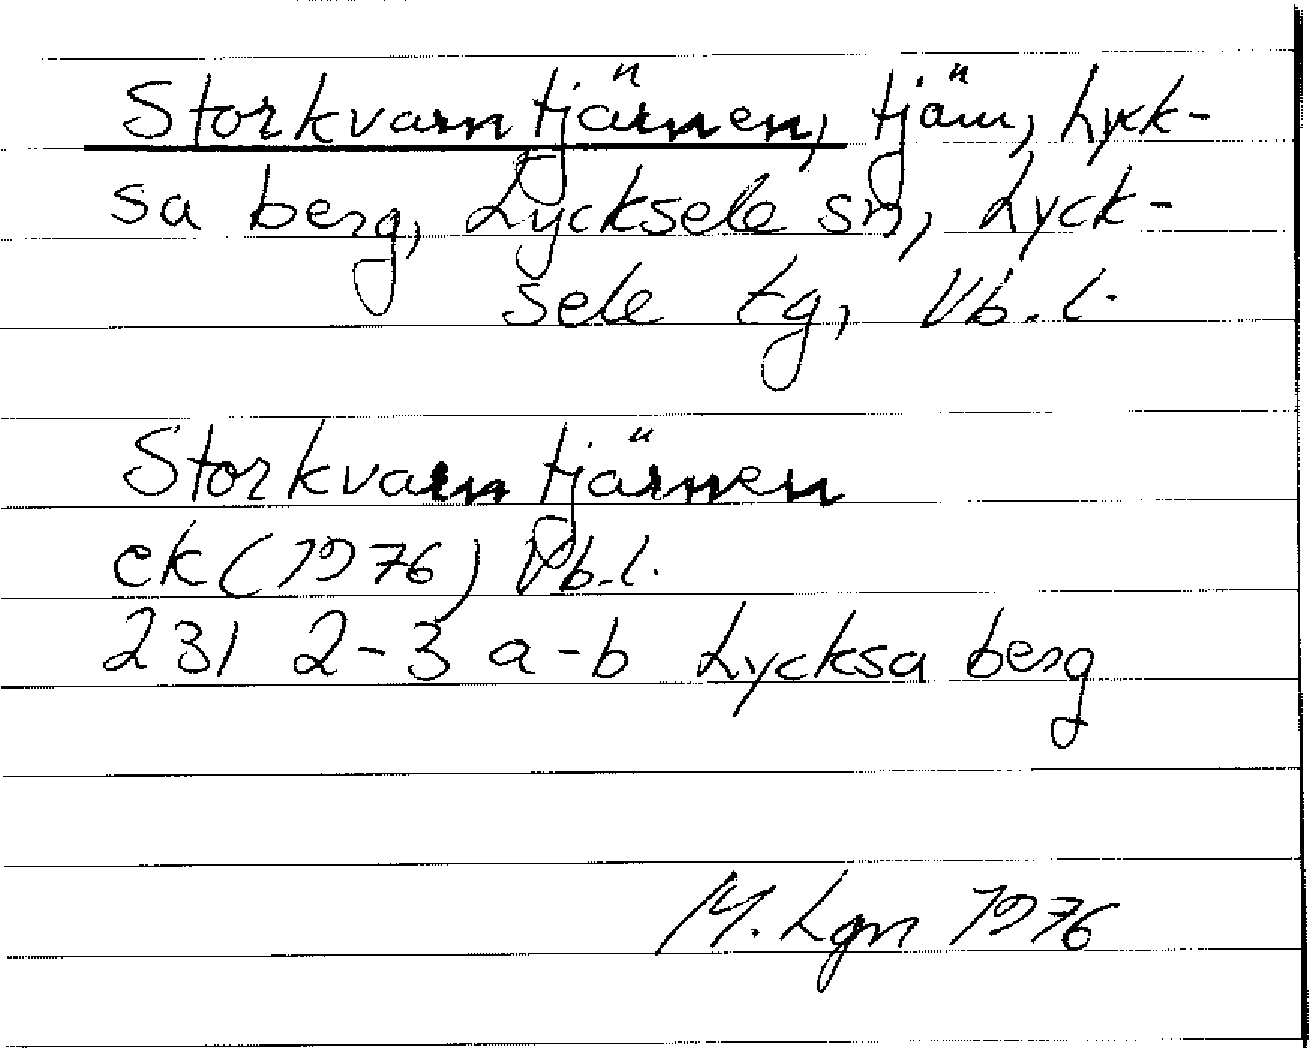 Storkvarntjärnen, tjärn, Lyck-
sa berg, Lycksele sn, Lyck-
sele tg, Vb. l.
Storkvarntjärnen
ek (1976) Vb. l.
231 2-3 a-b Lycksa berg
M. Lgn 1976